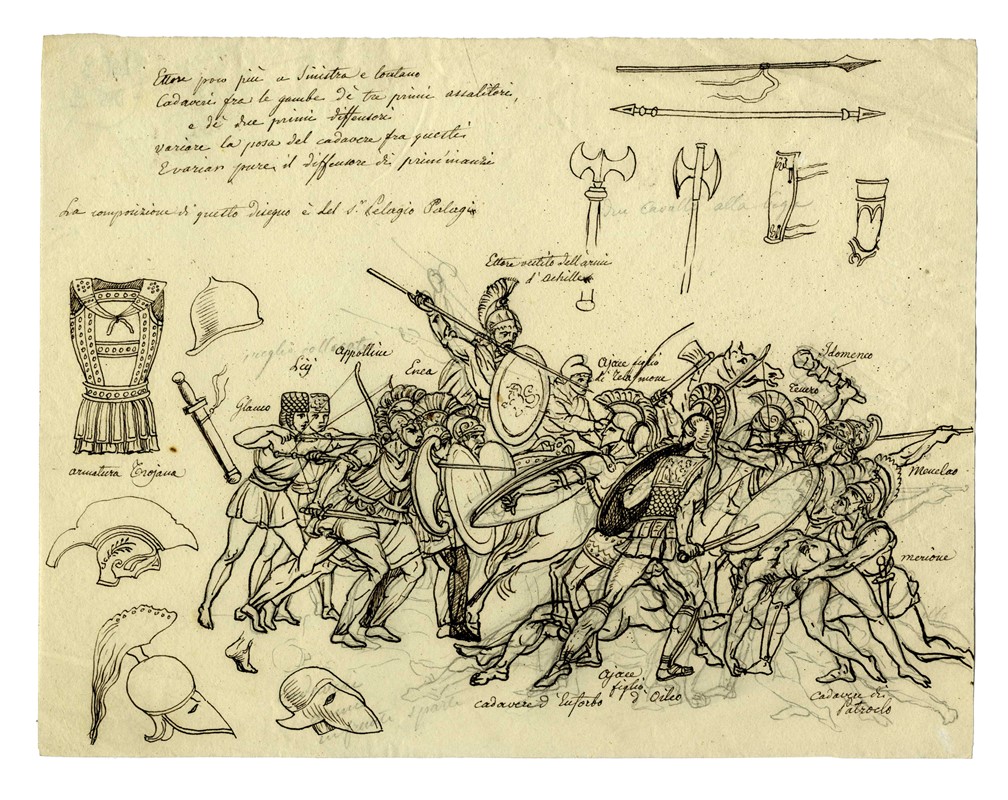 Ettore poco più a Sinistra e lontano
Cadaveri fra le gambe de tre primi assalitori,
e de due primi diffensori
variare la posa del cadavere fra questi
E variar pure il diffensore di prim'inanzi
La composizione di questo disegno è del S.r Pelagio Palagi
due cavalli alla biga
Ettore vestito dell'armi
d'Achille
Appolline
Licj
Enea
Glauco
Ajace figlio
di Telamone
Idomeneo
Teucro
Menelao
merione
armatura Trojana
Ajace
figlio
d'Oileo
cadavere d'Euforbo
Cadavere di
Patroclo